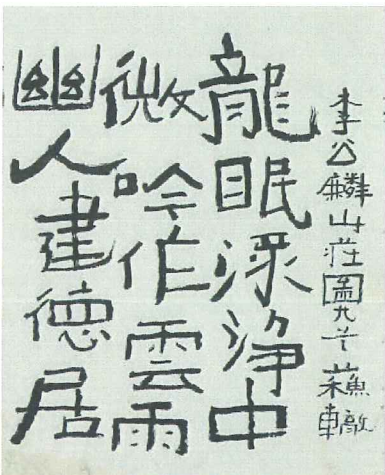 李公麟山莊圖 蘇轍
龍眠深浄中
微吟作雲雨
幽人建德居